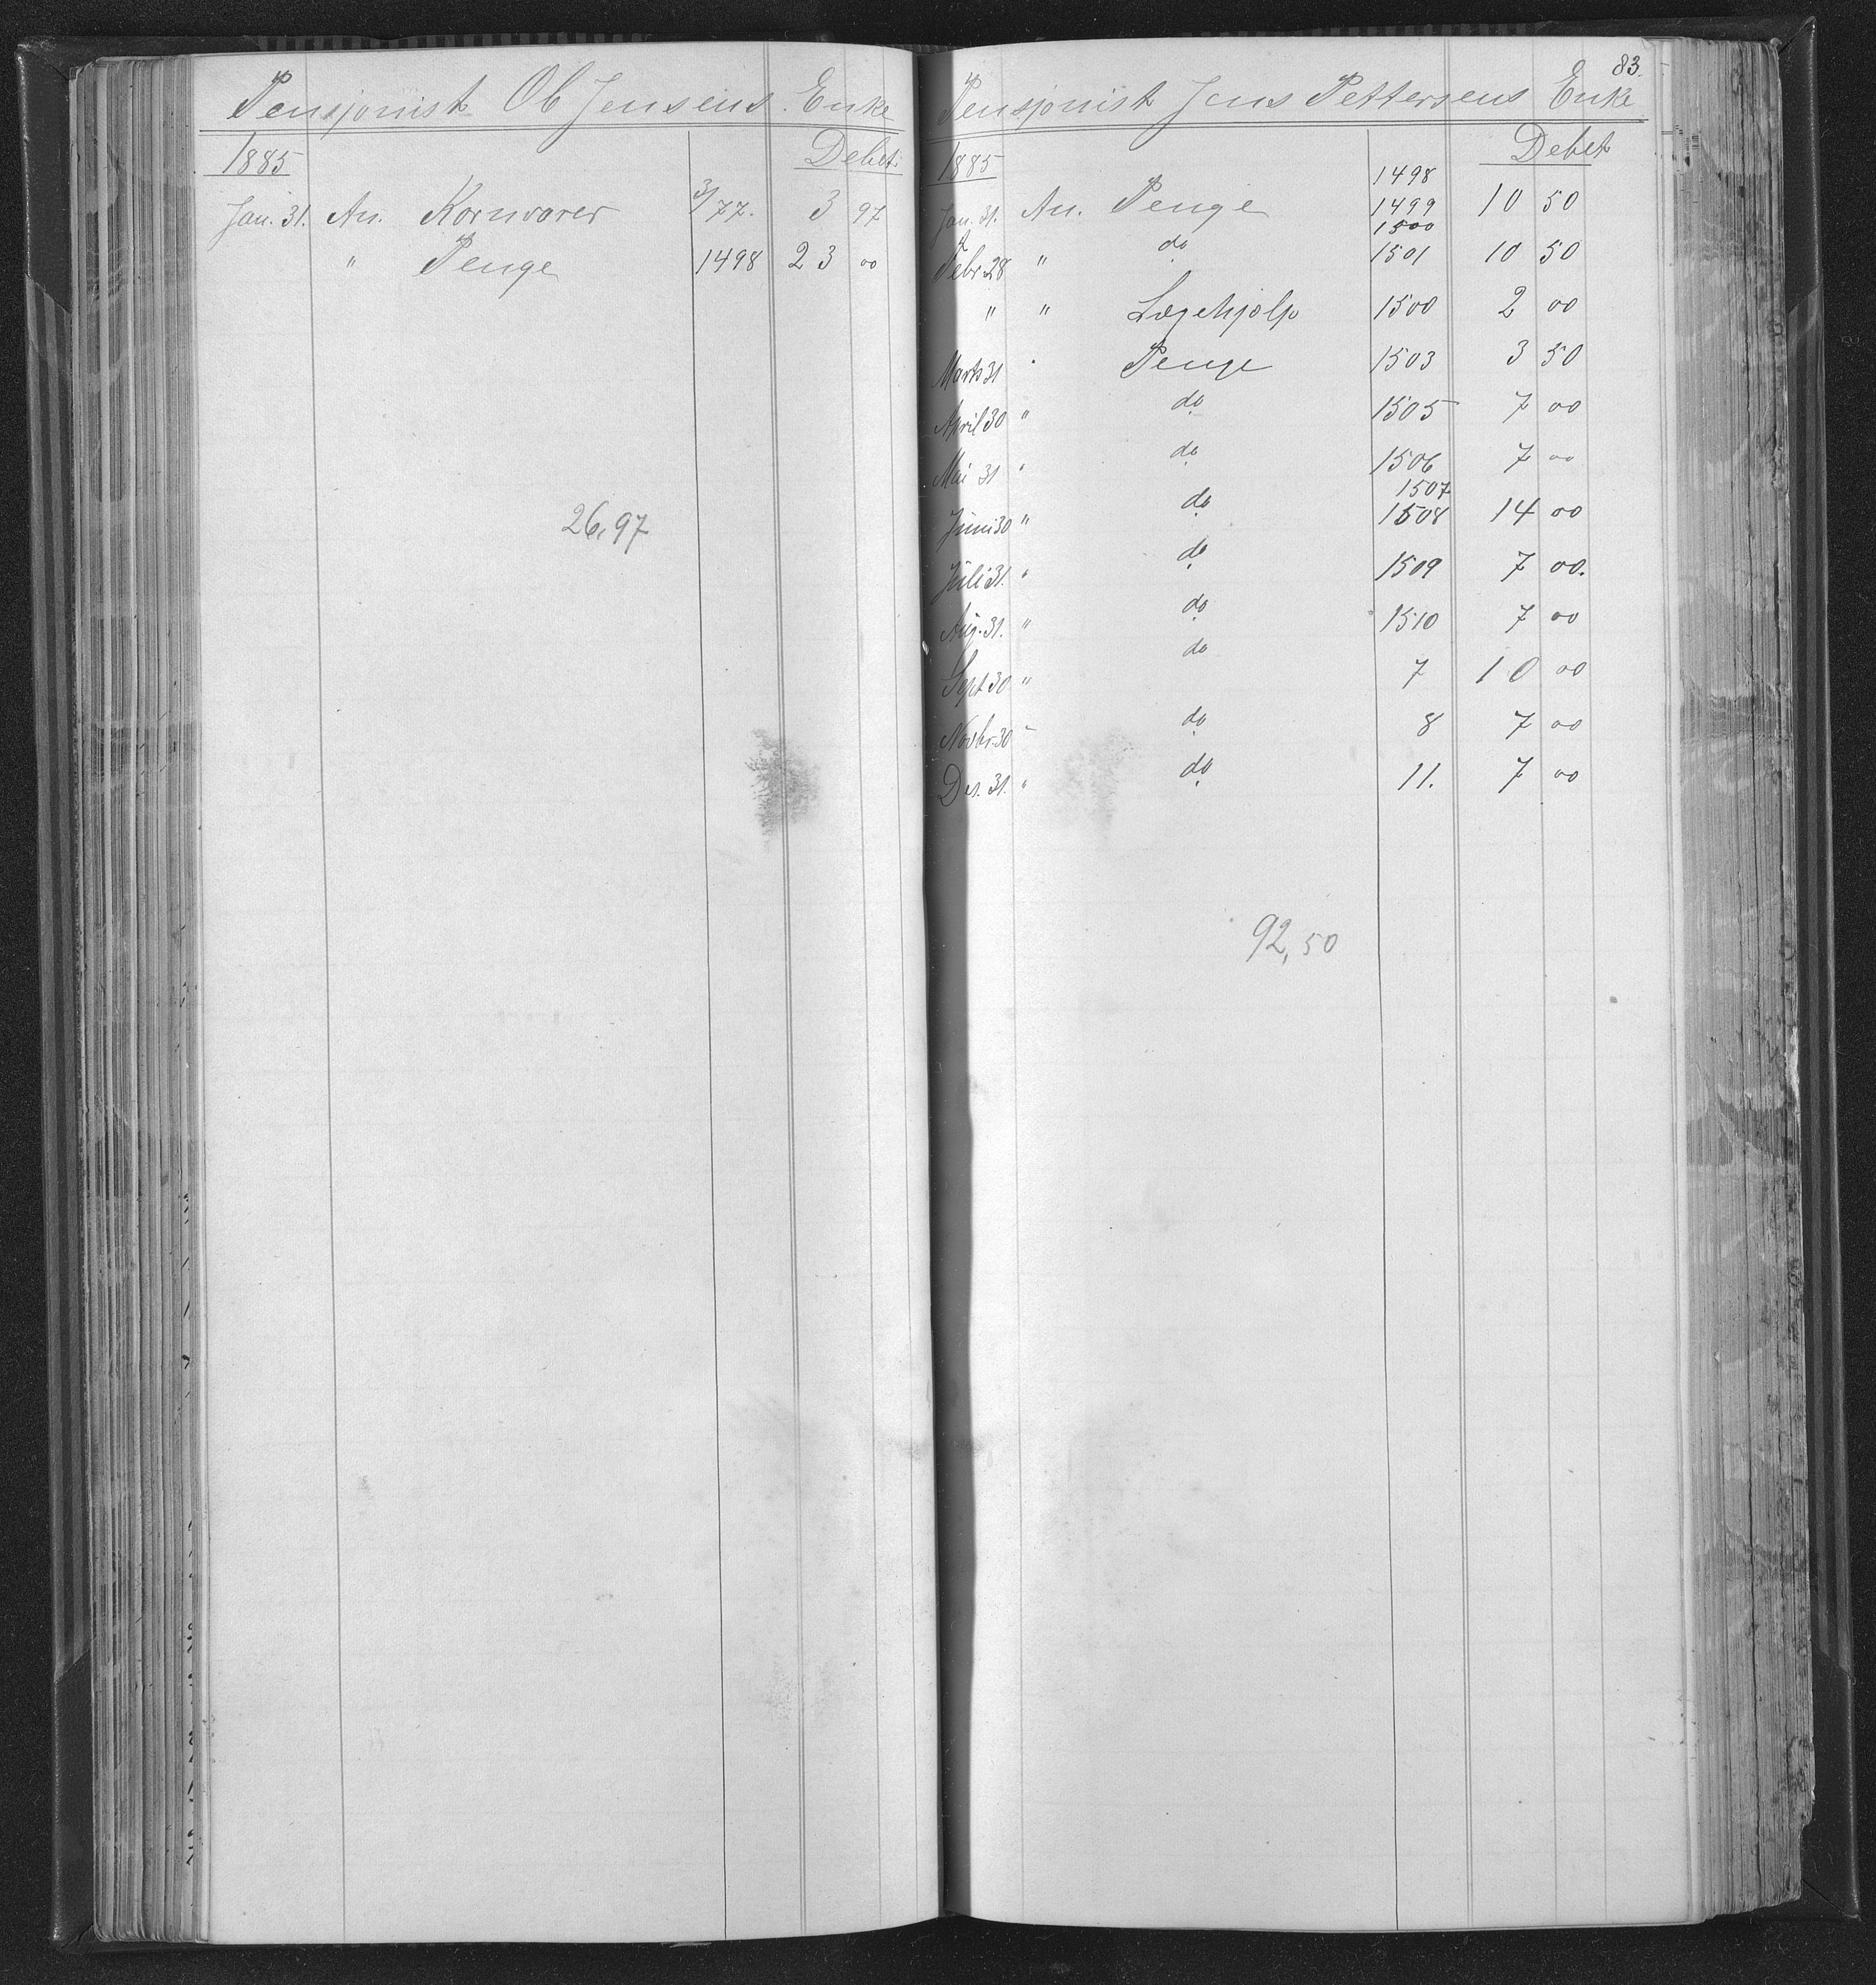 Pensjonist Ol Jensens Enke
1885 Debet
Jan. 31. An. Kornvarer 3/77. 3 97
" Penge 1498 23 00
26,97
83.
Pensjonist Jens Pettersens Enke
1885 Debet
1498
Jan. 31. An. Penge 1499 10 50
1500
Febr 28 " do 1501 10 50
" " Lægehjælp 1500 2 00
Marts 31 " Penge 1503 3 50
April 30 " do 1505 7 00
Mai 31 " do 1506 7 00
1507
Juni 30 " do 1508 14 00
Juli 31. " do 1509 7 00.
Aug. 31. " do 1510 7 00
Sept 30 " do 7 10 00
Novbr. 30 " do 8 7 00
Des. 31. " do 11. 7 00
92,50